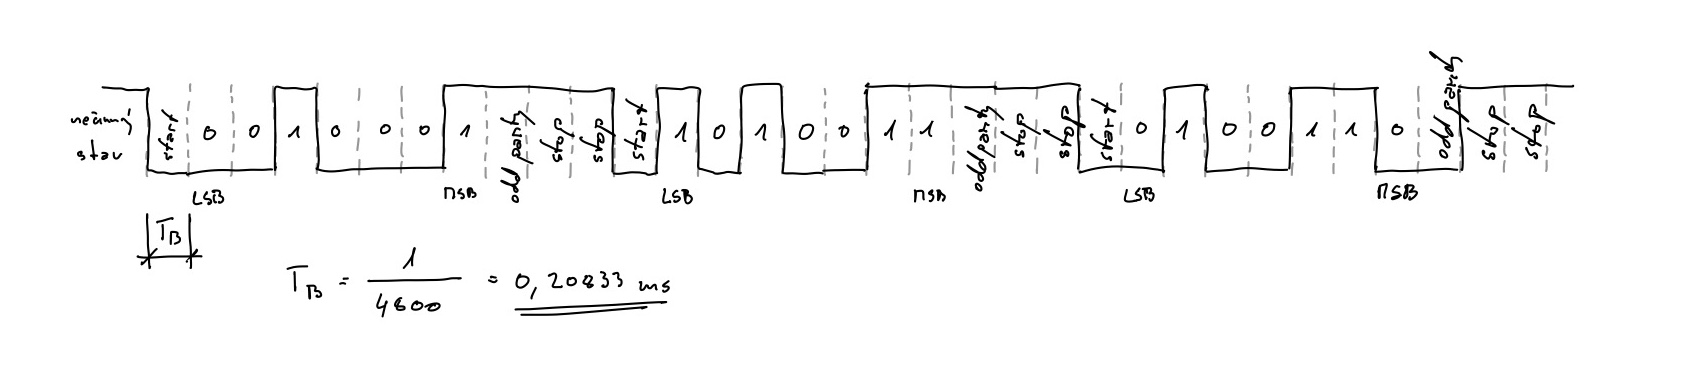 nečinný start 0 0 1 0 0 0 1 odd parity stop stop start 1 0 1 0 0 1 1 odd parity stop stop start 0 1 0 0 1 1 0 odd parity stop stop
stav
LSB MSB LSB MSB LSB MSB
T_B
T_B = 1/4800 = 0,20833 ms